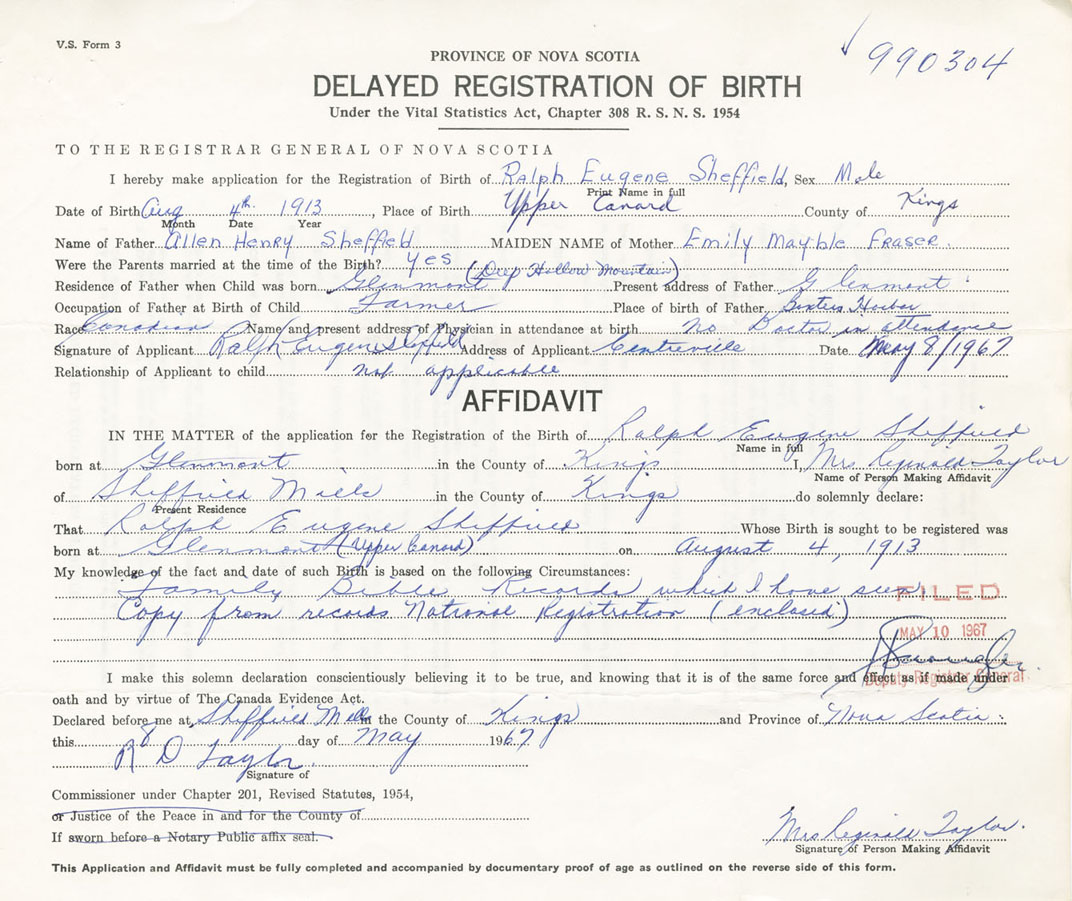 V.S. Form 3
990304
PROVINCE OF NOVA SCOTIA
DELAYED REGISTRATION OF BIRTH
Under the Vital Statistics Act, Chapter 308 R. S. N. S. 1954
TO THE REGISTRAR GENERAL OF NOVA SCOTIA
I hereby make application for the Registration of Birth of Ralph Eugene Sheffield, Sex Male
Print Name in full
Date of Birth Aug 4th 1913, Place of Birth Upper Canard County of Kings
Month Date Year
Name of Father Allen Henry Sheffield MAIDEN NAME of Mother Emily Mayble Fraser.
Were the Parents married at the time of the Birth? Yes (Deep Hollow Mountain)
Residence of Father when Child was born Glenmont Present address of Father Glenmont
Occupation of Father at Birth of Child Farmer Place of birth of Father Harbor
Race Canadian Name and present address of Physician in attendance at birth no Doctor in attendance
Signature of Applicant Ralph Eugene Sheffield Address of Applicant Centreville Date May 8/1967
Relationship of Applicant to child not applicable
AFFIDAVIT
IN THE MATTER of the application for the Registration of the Birth of Ralph Eugene Sheffield
Name in full
born at Glenmont in the County of Kings I, Mrs Reginald Taylor
Name of Person Making Affidavit
of Sheffield Mills in the County of Kings do solemnly declare:
Present Residence
That Ralph Eugene Sheffield Whose Birth is sought to be registered was
born at Glenmont (Upper Canard) on August 4, 1913
My knowledge of the fact and date of such Birth is based on the following Circumstances:
Family Bible Records which I have seen
Copy from records National Registration (enclosed)
FILED
MAY 10 1967
Deputy Registrar General
I make this solemn declaration conscientiously believing it to be true, and knowing that it is of the same force and effect as if made under
oath and by virtue of The Canada Evidence Act.
Declared before me at Sheffield Mills in the County of Kings and Province of Nova Scotia.
this 8 day of May 1967
R D Taylor.
Signature of
Commissioner under Chapter 201, Revised Statutes, 1954,
or Justice of the Peace in and for the County of
If sworn before a Notary Public affix seal.
Mrs Reginald Taylor.
Signature of Person Making Affidavit
This Application and Affidavit must be fully completed and accompanied by documentary proof of age as outlined on the reverse side of this form.